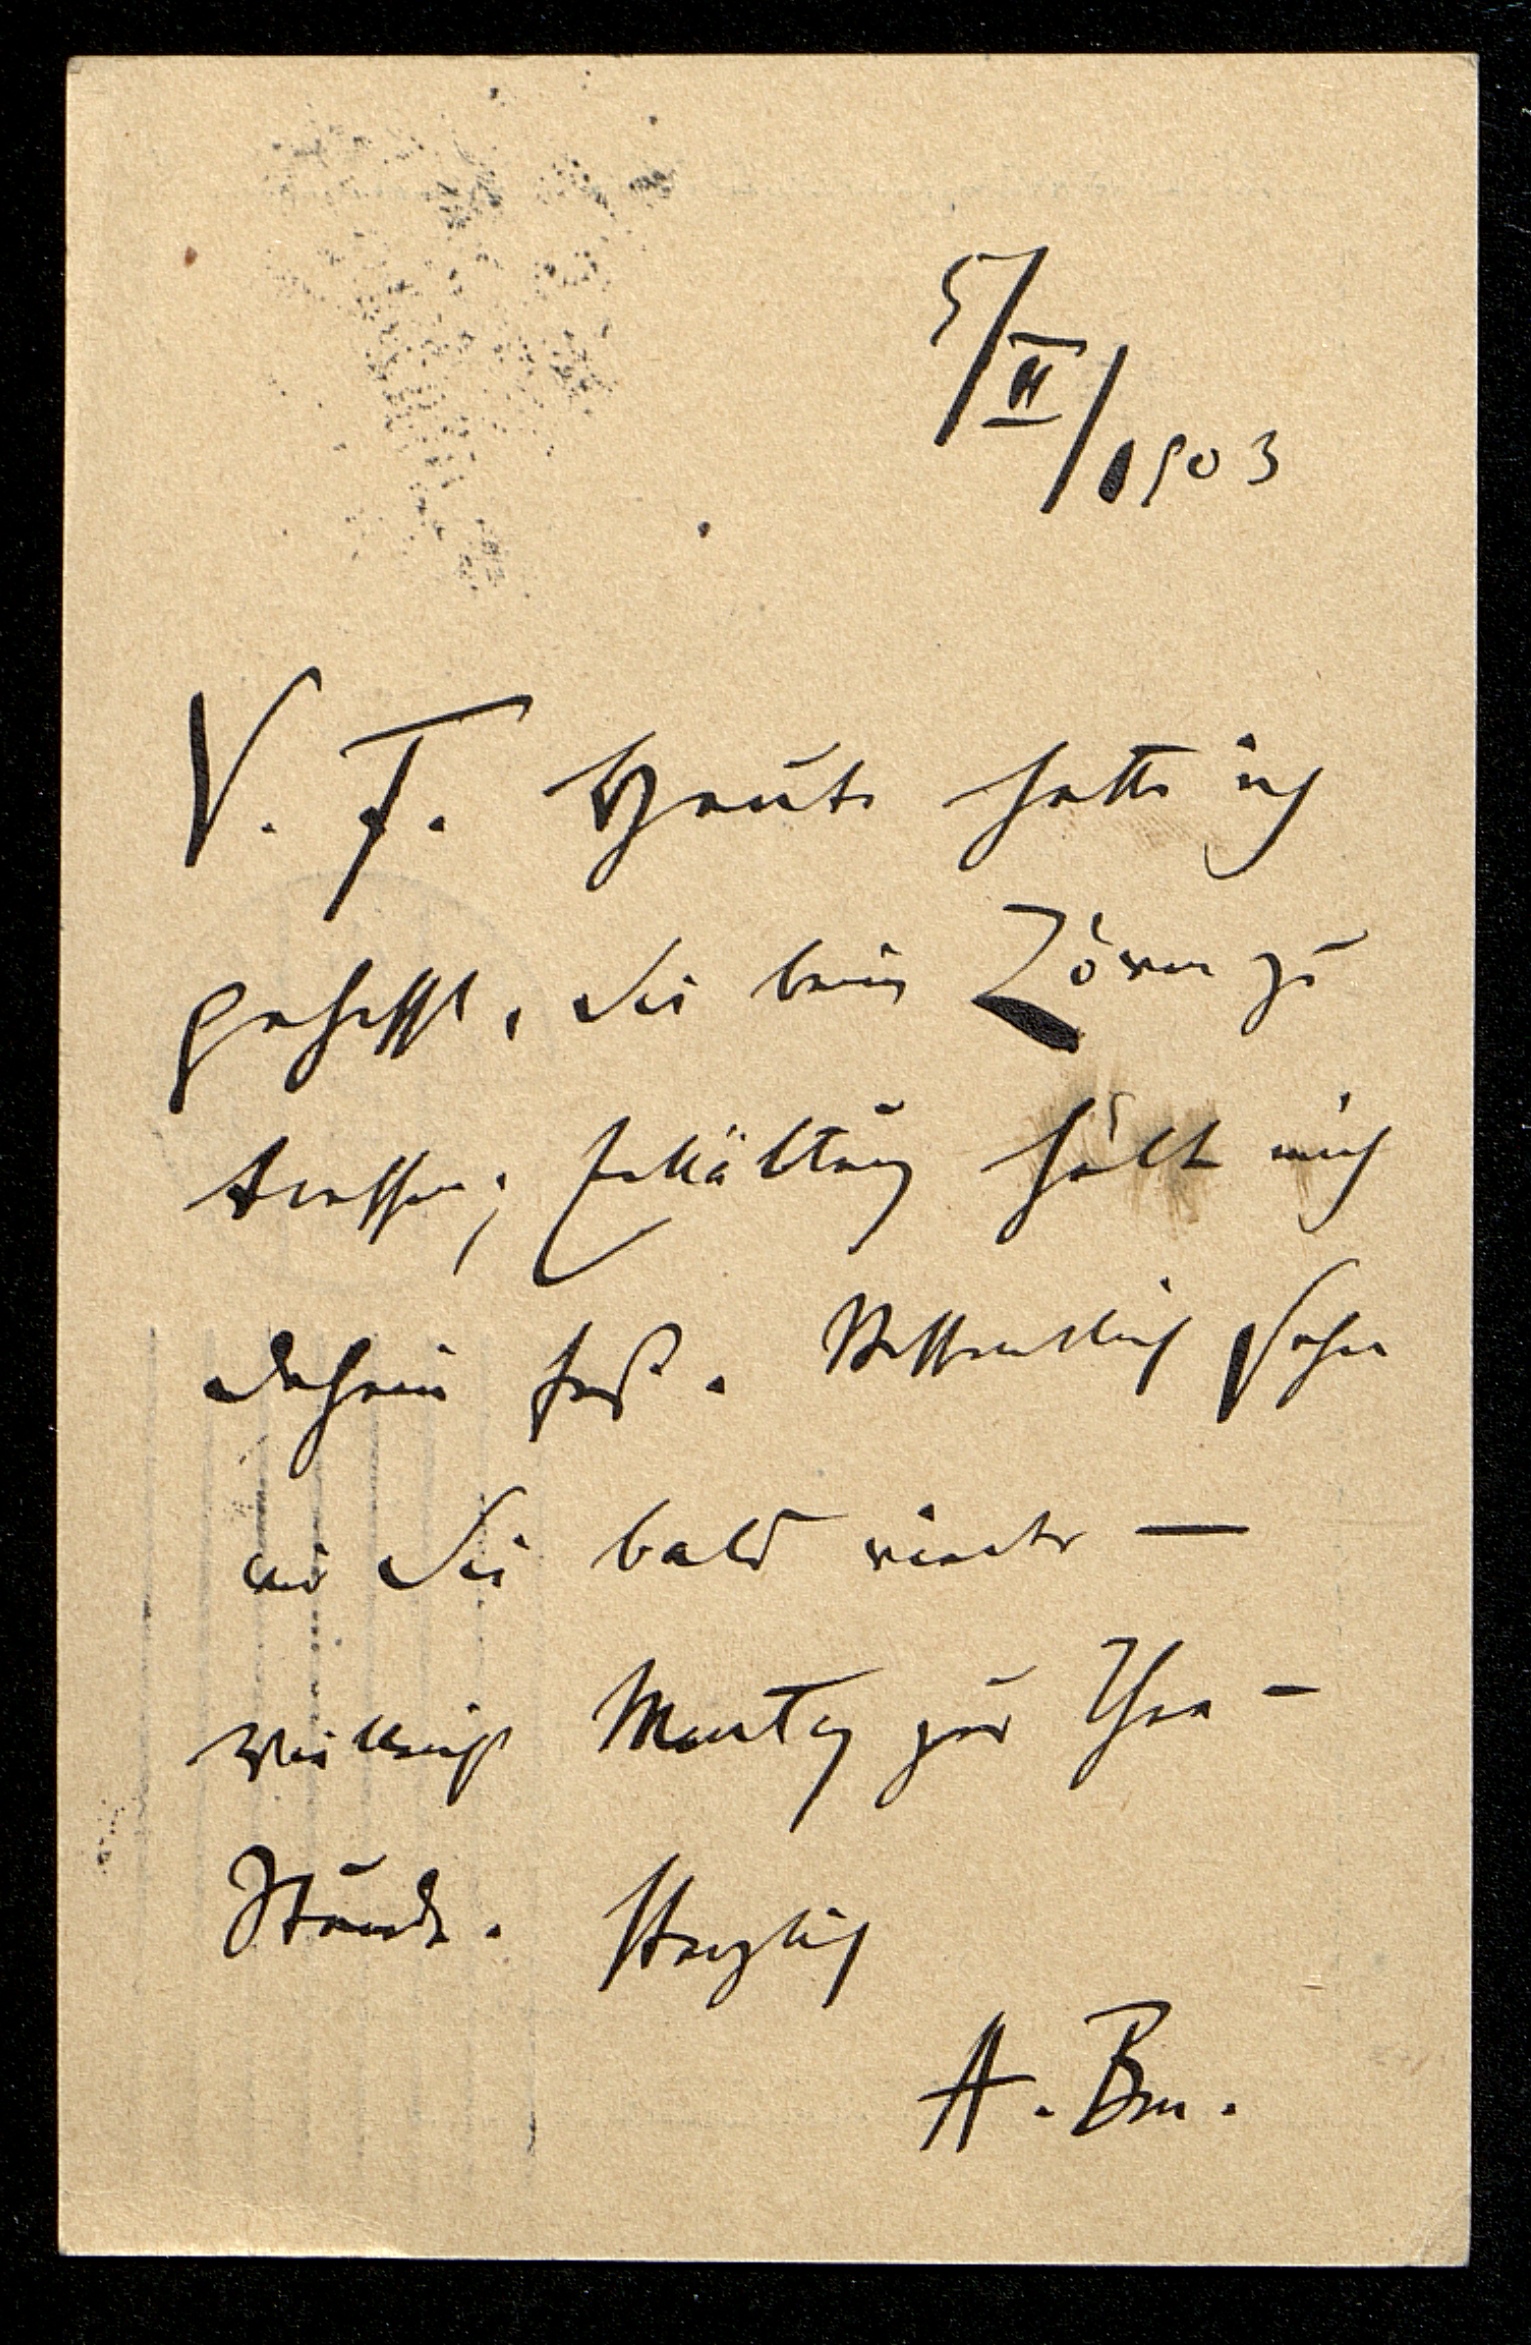 5/II/1903
V. F. Heute hatte ich
gehofft, Sie beim Löwen zu
treffen; Erkältung hält mich
daheim fest. Hoffentlich sehen
wir Sie bald wieder —
vielleicht Montag zur Thee-
Stunde. Herzlich
A. Bm.